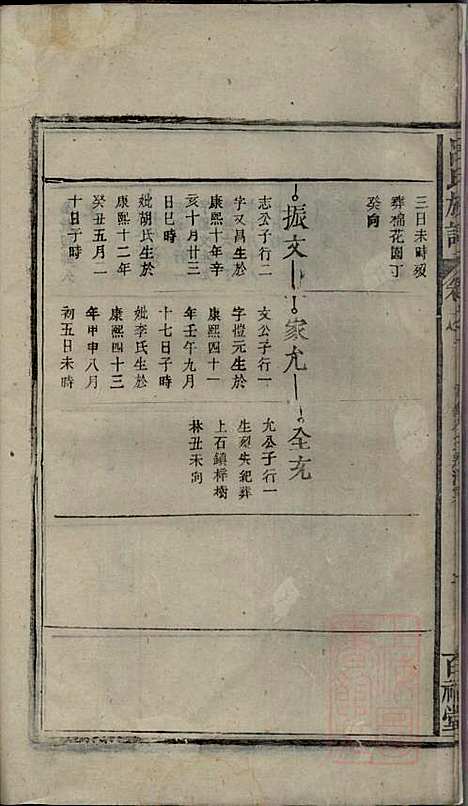 三日未時歿
葬棉花園丁
癸向
振文
家允
全充
志公子行二
字又昌生於
康熙十年辛
亥十月廿三
日巳時
妣胡氏生於
康熙十二年
癸丑五月一
十日子時
文公子行一
字愷元生於
康熙四十一
年壬午九月
十七日子時
妣李氏生於
康熙四十三
年甲申八月
初五日未時
允公子行一
生歿失紀葬
上石鎮樟樹
林丑未向
氏族譜